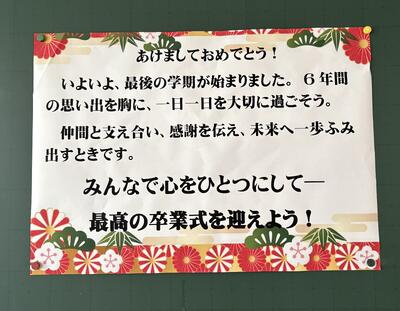 あけましておめでとう！
いよいよ、最後の学期が始まりました。６年間
の思い出を胸に、一日一日を大切に過ごそう。
仲間と支え合い、感謝を伝え、未来へ一歩ふみ
出すときです。
みんなで心をひとつにして―
最高の卒業式を迎えよう！